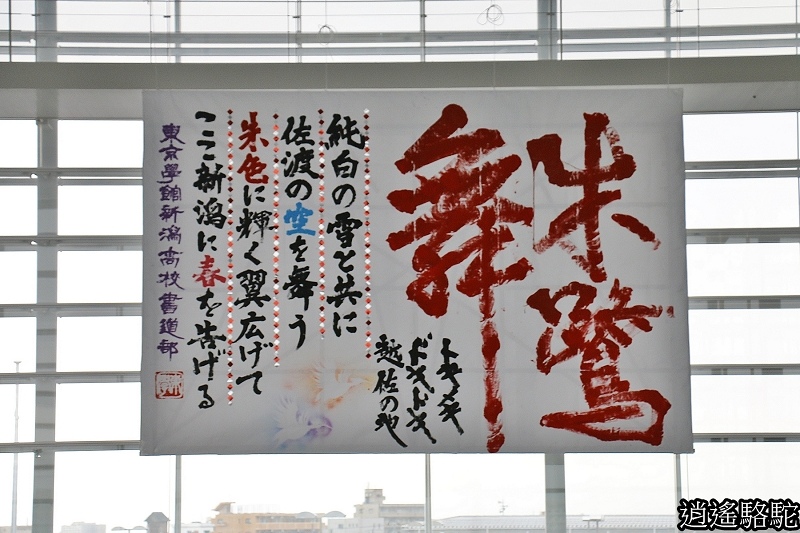 朱鷺
舞
トキメキ
ドキドキ
越佐の地
純白の雪と共に
佐渡の空を舞う
朱色に輝く翼広げて
ここ新潟に春を告げる
東京学館新潟高校書道部
逍遙駱駝